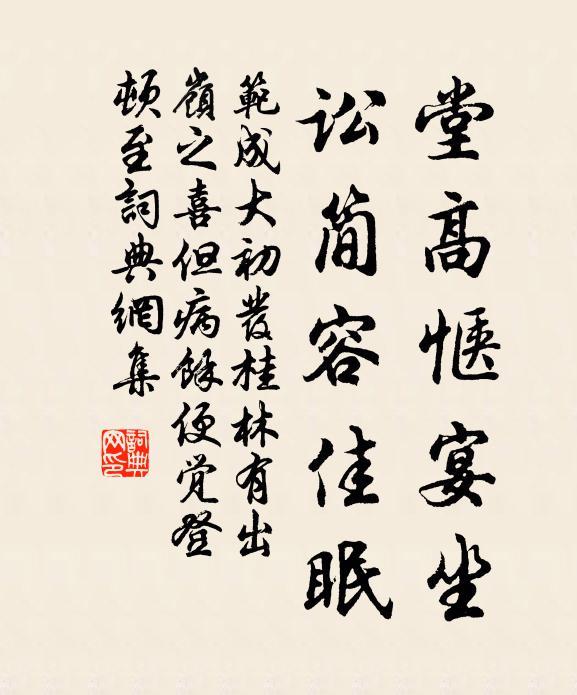 堂高惬宴坐
讼简容佳眠
範成大初發桂林有出
嶺之喜但病餘便觉登
頓至詞典網集
詞典
网印